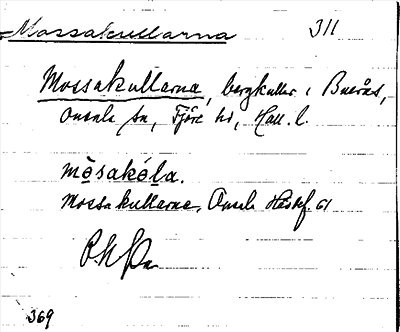 Mossakullarna
311
Mossakullarna, bergkullar i Buerås,
Onsala sn, Fjäre hd, Hall. l.
mòsakóla.
Mossakullarna, Onsala
369